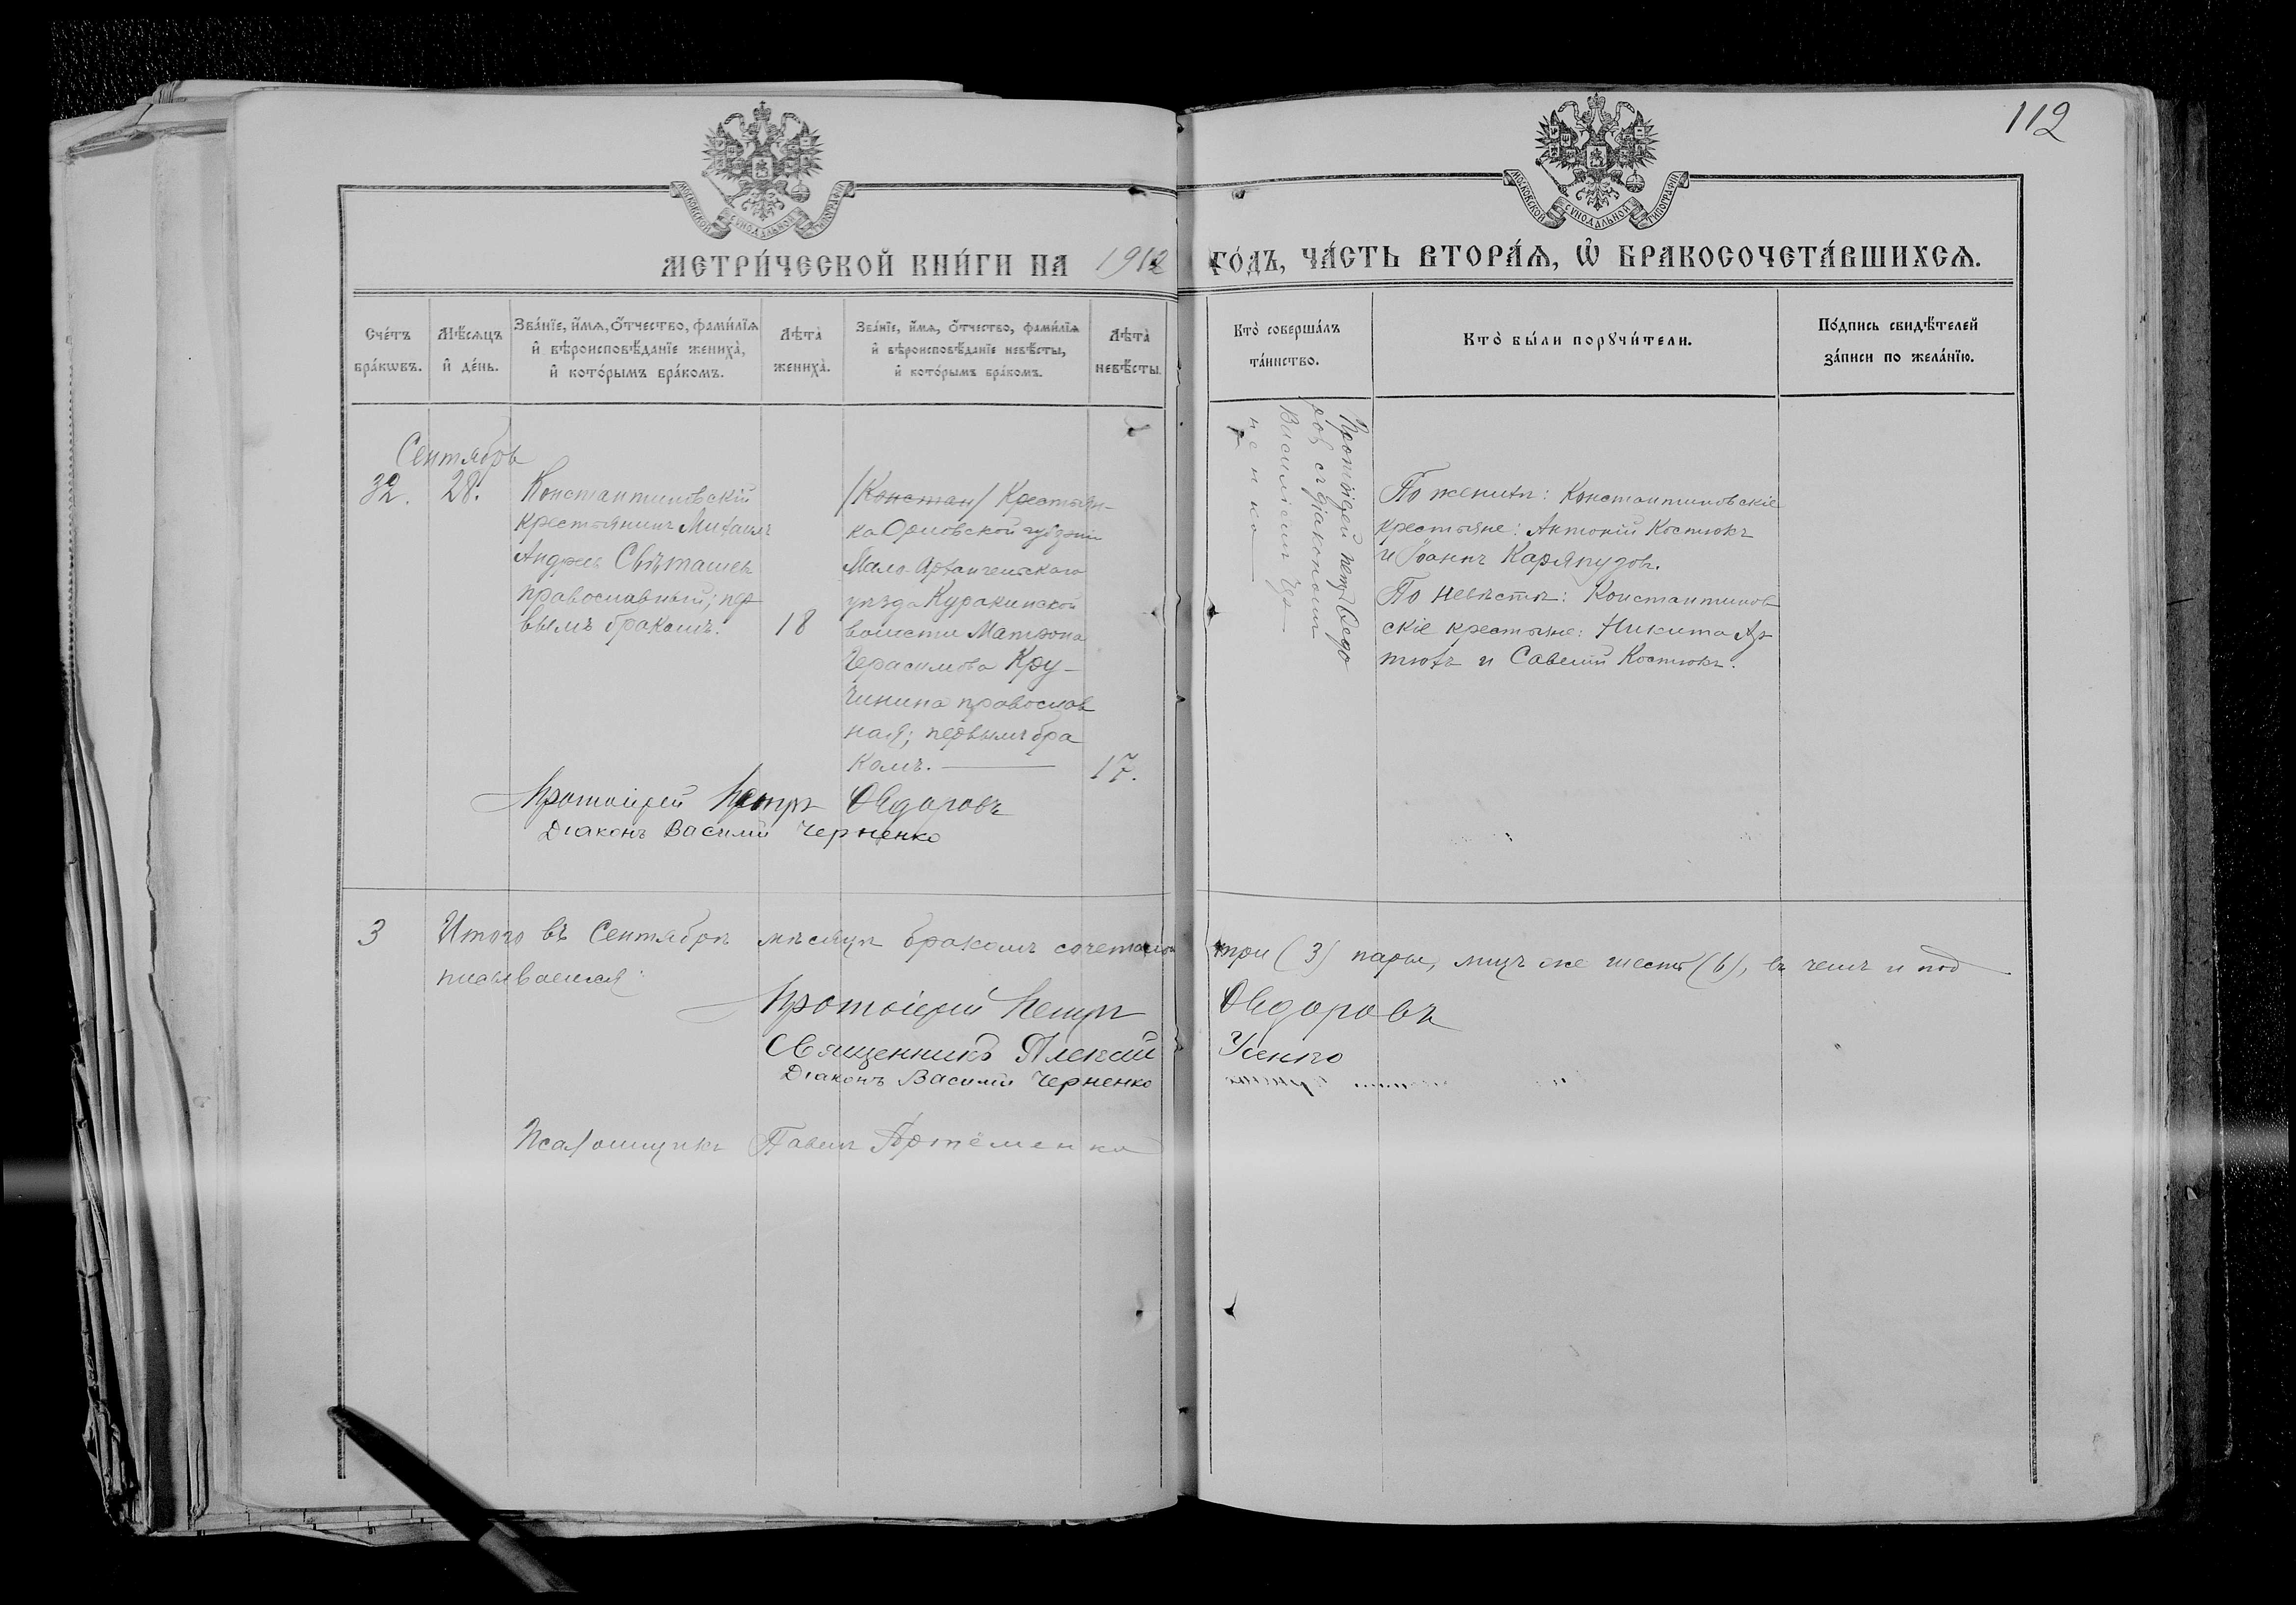 112
МОСКОВСКОЙ СУНОДАЛЬНОЙ ТИПОГРАФІИ
МОСКОВСКОЙ СУНОДАЛЬНОЙ ТИПОГРАФІИ
МЕТРИ́ЧЕСКОЙ КНИ́ГИ НА 1912 ГО́ДЪ, ЧА́СТЬ ВТОРА́Ѧ, Ѡ҆ БРАКОСОЧЕТА́ВШИХСѦ.
Сче́тъ бра́кѡвъ.
Мѣ́сѧцъ и҆ де́нь.
Зва́нїе, и҆́мѧ, ѻ҆́тчество, фами́лїѧ
и҆ вѣроисповѣ́данїе жениха̀,
и҆ кото́рымъ бра́комъ.
Лѣта̀ жениха̀.
Зва́нїе, и҆́мѧ, ѻ҆́тчество, фами́лїѧ
и҆ вѣроисповѣ́данїе невѣ́сты,
и҆ кото́рымъ бра́комъ.
Лѣта̀ невѣ́сты.
Кто̀ соверша́лъ
та́инство.
Кто̀ бы́ли порꙋчи́тели.
По́дпись свидѣ́телей
за́писи по жела́нїю.
Сентябрь
32. 28.
Константиновскій
крестьянинъ Михаилъ
Андреев Свѣташев
православный; пер
вымъ бракомъ. 18
/Констан/ Крестьян-
ка Орловской губерніи
Мало-Архангельскаго
уѣзда Куракинской
волости Матрона
Герасимова Кру-
чинина православ
ная; первымъ бра
комъ. 17.
Протоіерей Петръ Ѳедо
ровъ съ діакономъ
Василіемъ Чер-
ненко
По женихѣ: Константиновскіе
крестьяне: Антоній Костюкъ
и Іоаннъ Каряпузов.
По невѣстѣ: Константинов
скіе крестьяне: Никита Ар
тюхъ и Савелій Костюкъ.
Протоіерей Петръ Ѳедоровъ
Діаконъ Василій Черненко
3 Итого въ Сентябрѣ мѣсяцѣ бракомъ сочеталось три (3) пары, лицъ же шесть (6), въ чемъ и под
писываемся:
Протоіерей Петръ Ѳедоровъ
Священникъ Алексій Усенко
Діаконъ Василій Черненко
Псаломщикъ Павелъ Артёменко